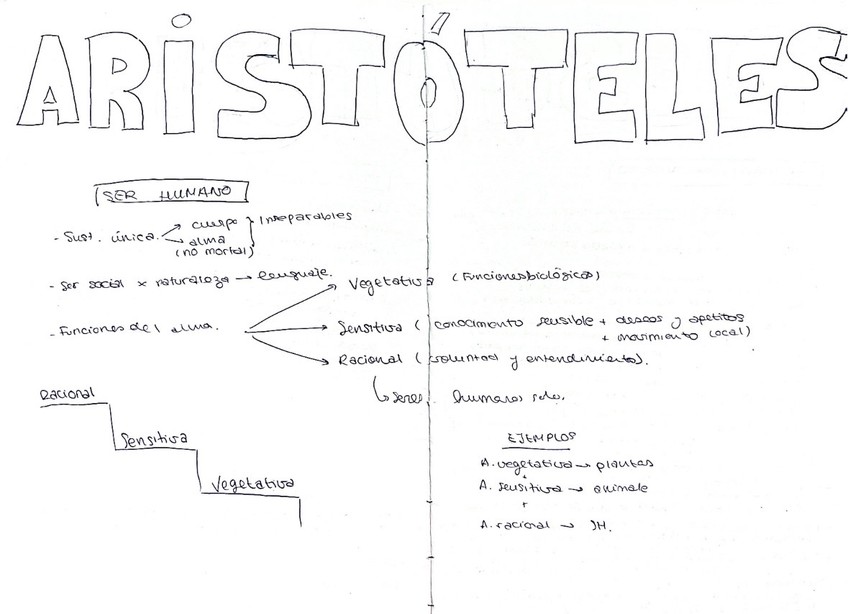 ARISTÓTELES
SER HUMANO
- Sust. única. cuerpo Inseparables
alma
(no mortal)
- Ser social x naturaleza → lenguaje.
- Funciones del alma.
Vegetativa (Funciones biológicas)
Sensitiva (conocimiento sensible + deseos y apetitos
+ movimiento local)
Racional (voluntad y entendimiento).
seres humanos solo.
Racional
Sensitiva
Vegetativa
EJEMPLOS
A. vegetativa → plantas
+
A. sensitiva → animale
+
A. racional →